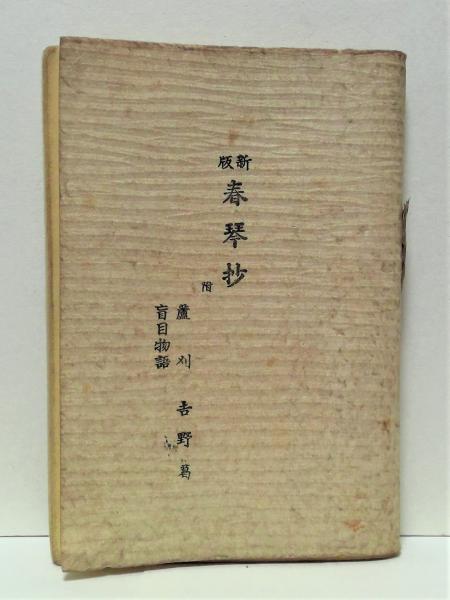 新版
春琴抄
附
蘆刈 吉野葛
盲目物語